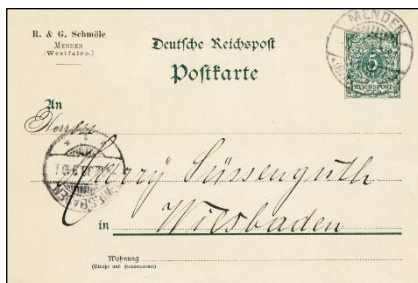 R. & G. Schmöle
MENDEN
(Westfalen.)
Deutsche Reichspost
Postkarte
MENDEN
5
REICHSPOST
An
Harry Süssenguth
in Wiesbaden
Wohnung
(Straße und Hausnummer)